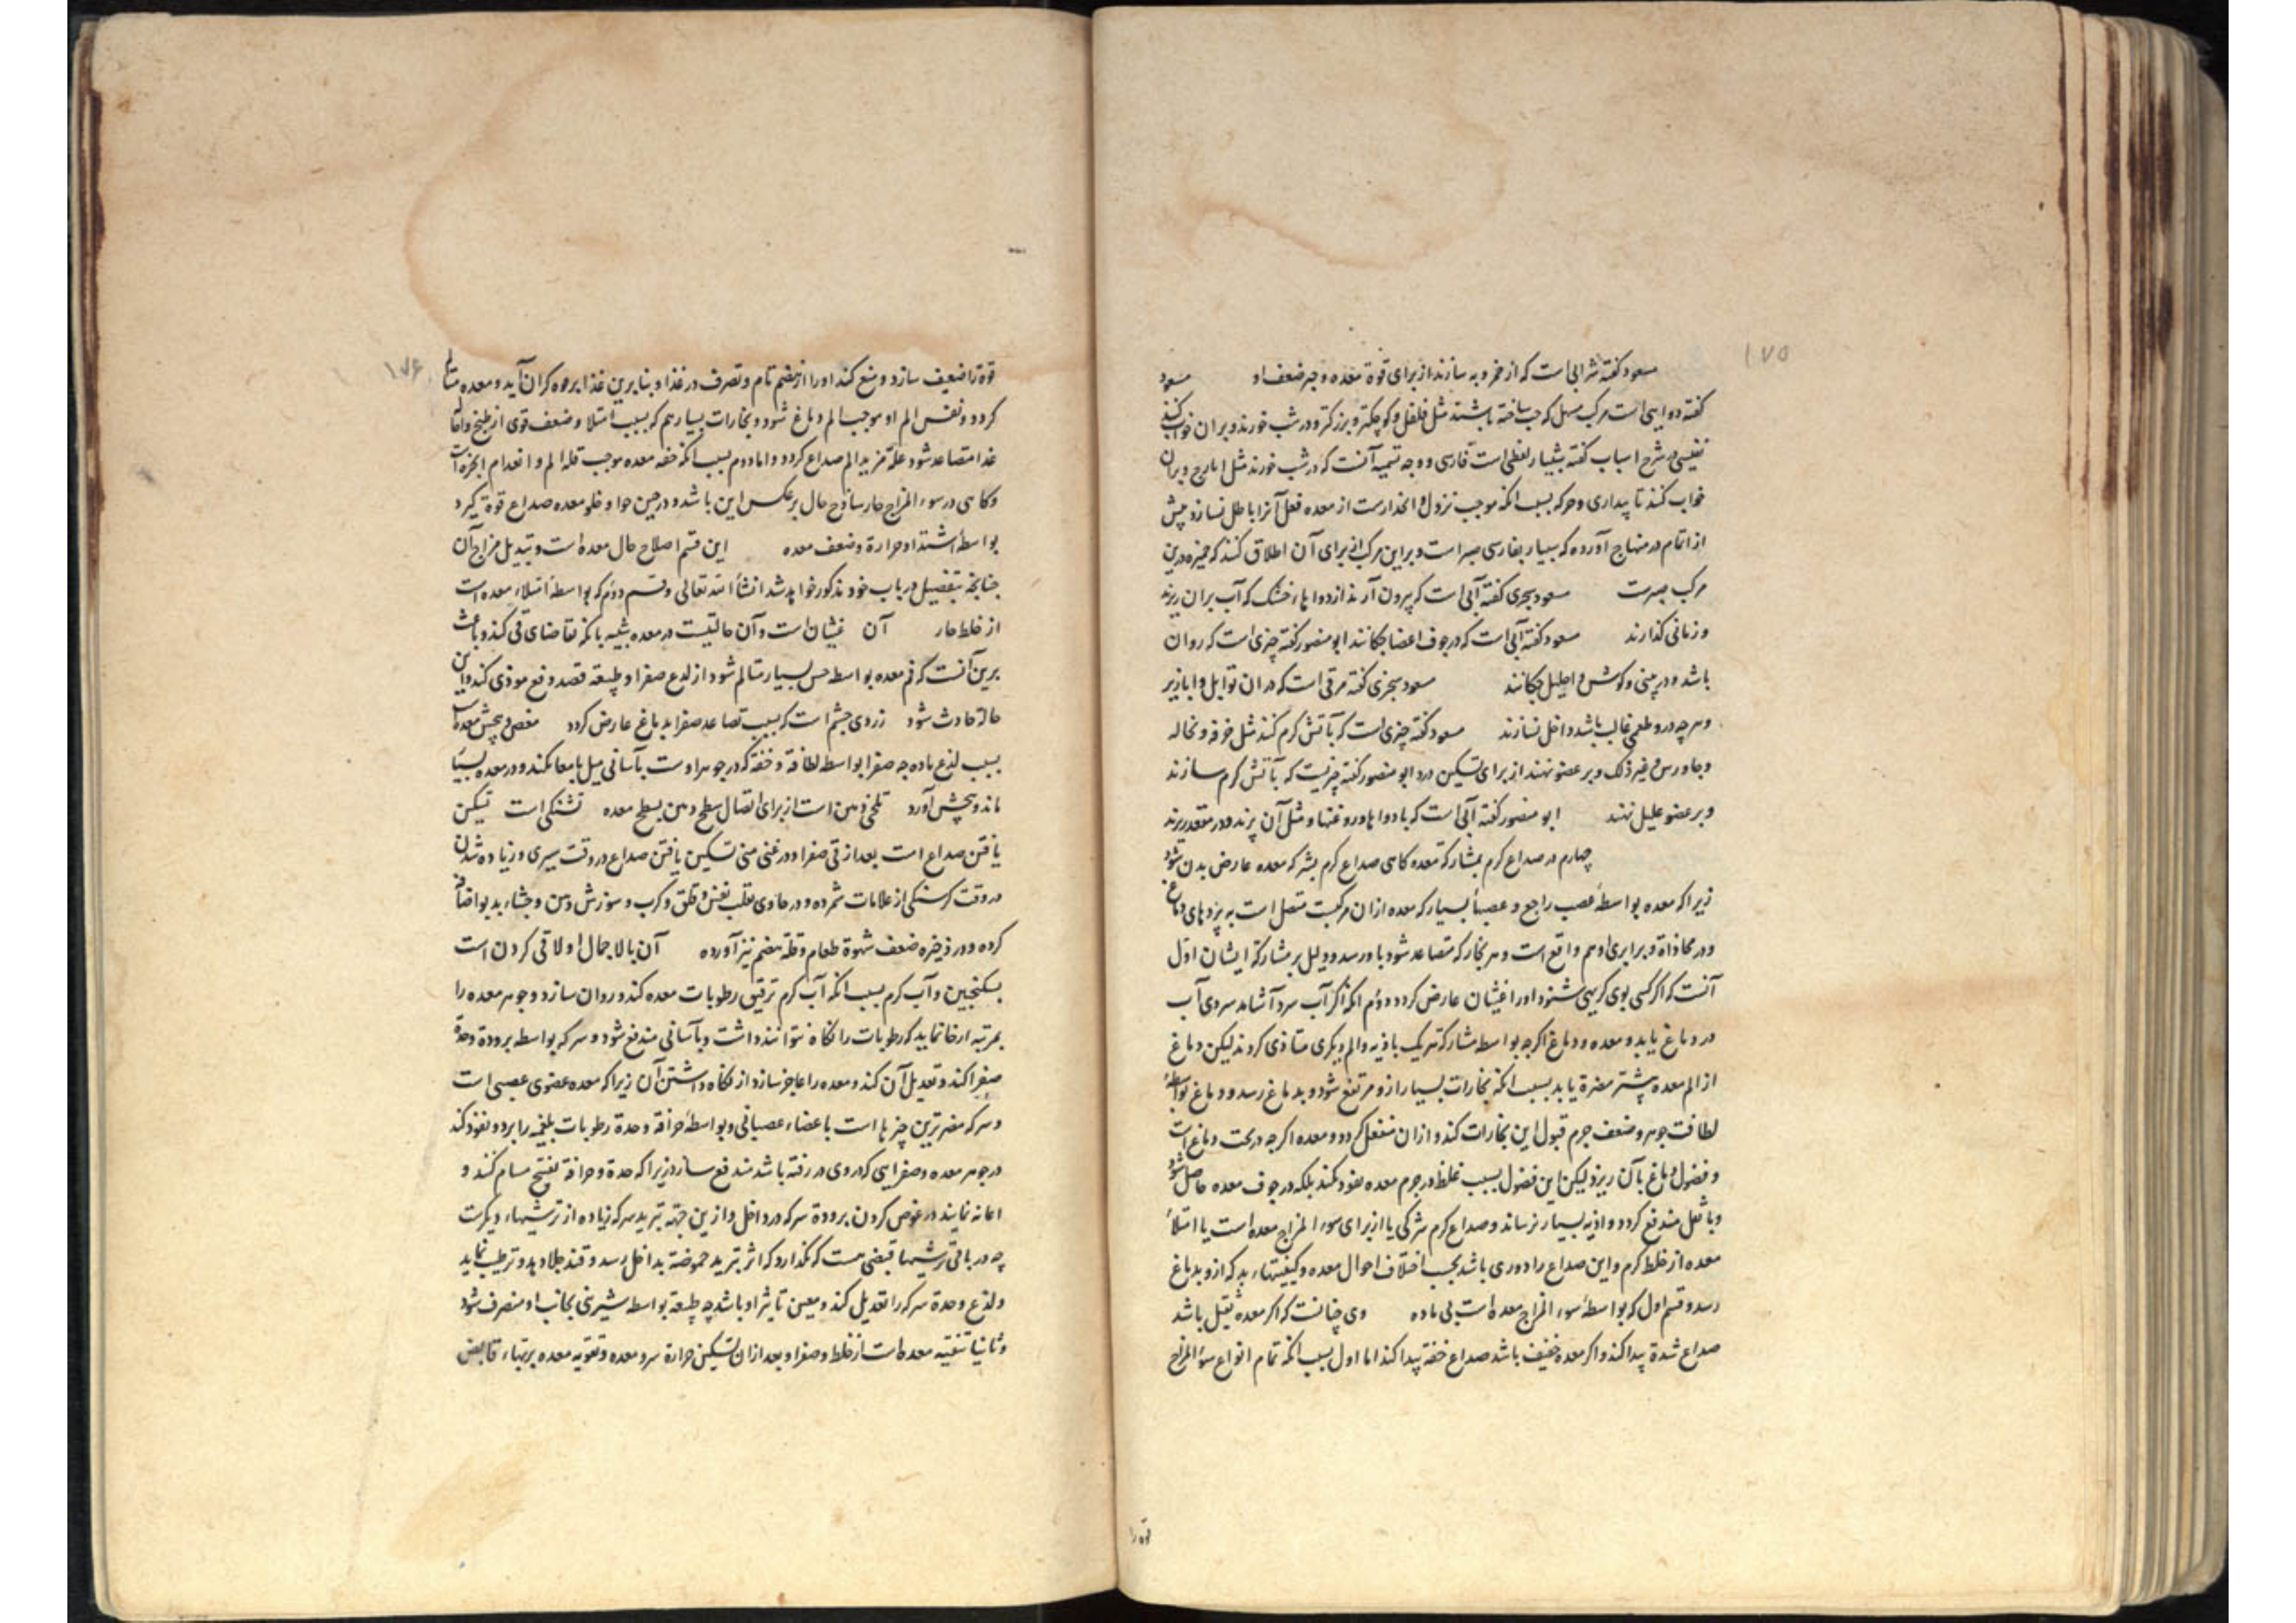 ۱۷۵
مسعود کفته شرابی است که از خمر و به سازند از برای قوة معده و جبر ضعف او مسعود
کفته دوایی است مرکب مسهل که حب ساخته باشند مثل فلفل و کوچکتر و بزرکتر و در شب خورند و بر ان خواب کنند
نفیسی در شرح اسباب کفته شبیار لفظی است فارسی و وجه تسمیه آنست که در شب خورند مثل ایارج و بران
خواب کنند تا بیداری و حرکه بسبب انکه موجب نزول و انحدارست از معده فعل آنرا باطل نسازد پیش
از اتمام در منهاج آورده که شبیار بفارسی صبر است و بر این مرکب از برای آن اطلاق کنند که خمیره درین
مرکب صبرست مسعود سجزی کفته آبی است که بیرون آرند از دواهاء خشک که آب بر ان ریزند
و زمانی گذارند مسعود کفته آبی است که در جوف اعضا چکانند ابو منصور کفته چیزی است که روان
باشد و در بینی و کوش و احلیل چکانند مسعود سجزی کفته مرقی است که در ان توابل و ابازیر
و هر چه در و طعمی غالب باشد داخل نسازند مسعود کفته چیزی است که بآتش کرم کنند مثل خرقه و نخاله
و جاورس و غیر ذلک و بر عضو نهند از برای تسکین درد ابو منصور کفته چیزیست که بآتش کرم سازند
و بر عضو علیل نهند ابو منصور کفته آبی است که با دواها و روغنها و مثل آن پزند و در مقعد ریزند
چهارم در صداع کرم بمشارکة معده کاهی صداع کرم بشرکه معده عارض بدن شود
زیرا که معده بواسطهٔ عصب راجع و عصبها بسیار که معده ازان مرکبست متصل است به پردهای دماغ
و در محاذاة و برابری او هم واقع است و هر بخار که متصاعد شود باو رسد و دلیل بر مشارکة ایشان اول
آنست که اکر کسی بوی کریهی شنود اورا غثیان عارض کردد و دوم انکه اکر آب سرد آشامد سردی آب
در دماغ یابد و معده و دماغ اکرچه بواسطه مشارکة هریک باذیه و الم دیکری متاذی کردند لیکن دماغ
از الم معده بیشتر مضرة یابد بسبب انکه بخارات بسیار از و مرتفع شود و بدماغ رسد و دماغ بواسطهٔ
لطافت جوهر و ضعف جرم قبول این بخارات کند و ازان منفعل کردد و معده اکرچه در تحت دماغ است
و فضول دماغ بآن ریزد لیکن این فضول بسبب غلظ در جرم معده نفوذ نکند بلکه در جوف معده حاصل شود
و با ثفل مندفع کردد و اذیه بسیار نرساند و صداع کرم شرکی یا از برای سوء المزاج معده است یا امتلاء
معده از خلط کرم و این صداع را دوری باشد بحسب اختلاف احوال معده و کیفیتهاء بد که ازو بدماغ
رسد و قسم اول که بواسطهٔ سوء المزاج معده است بی ماده وی چنانست که اکر معده ثقیل باشد
صداع شدة پیدا کند و اکر معده خفیف باشد صداع خفة پیدا کند اما اول بسبب انکه تمام انواع سوء المزاج
قوة را
۱۷۶
قوة را ضعیف سازد و منع کند اورا از هضم تام و تصرف در غذا و بنا برین غذا بر وه کران آید و معده متالم
کردد و نفس الم او موجب الم دماغ شود و بخارات بسیار هم که بسبب امتلا و ضعف قوی از طبخ و اقامة
غذا متصاعد شود علة مزید الم صداع کردد و اما دوم بسبب انکه خفه معده موجب قله الم و انعدام ابخره است
و کاهی در سوء المزاج حار ساذج حال بر عکس این باشد و در حین جوا و خلو معده صداع قوة کیرد
بواسطه اشتداد حرارة و ضعف معده این قسم اصلاح حال معده است و تبدیل مزاج آن
چنانچه بتفصیل در باب خود مذکور خواهد شد انشأ الله تعالی و قسم دوم که بواسطهٔ امتلاء معده است
از خلط حار آن غثیان است و آن حالتیست در معده شبیه بانکه تقاضای قی کند و باعث
برین آنست که فم معده بواسطه حس بسیار متالم شود از لدع صفرا و طبیعه قصد دفع موذی کند و این
حالة حادث شود زردی چشم است که بسبب تصاعد صفرا بدماغ عارض کردد مغص و پیچش معده است
بسبب لذع ماده چه صفرا بواسطه لطافة و خفة که در جوهر اوست بآسانی میل بامعا نکند و در معده بسیار
ماند و پیچش آورد تلخی دهن است از برای اتصال سطح دهن بسطح معده تشنکی است تسکین
یافتن صداع است بعد از قی صفرا و در غنی منی تسکین یافتن صداع در وقت سیری و زیاده شدن
در وقت کرسنکی از علامات شمرده و در حاوی تقلب نفس و قلق و کرب و سوزش دهن و جشاء بد بو اضافه
کرده و در ذخیره ضعف شهوة طعام و قلة هضم نیز آورده آن بالاجمال اولا قی کردن است
بسکنجبین و آب کرم بسبب انکه آب کرم ترقیق رطوبات معده کند و روان سازد و جوهر معده را
بمرتبه ارخا نماید که رطوبات را نکاه نتوانند داشت و بآسانی مندفع شود و سرکه بواسطه برودة و حدة
صفرا کند و تعدیل آن کند و معده را عاجز سازد از نکاه داشتن آن زیرا که معده عضوی عصبی است
و سرکه مضرترین چیزها است باعضاء عصبانی و بواسطهٔ حرافة و حدة رطوبات بلغمیه را برد و نفوذ کند
در جوهر معده و صفرایی که در وی در رفته باشد مندفع سازد زیرا که حدة و حرافة تفتیح مسام کنند و
اعانه نمایند در غوص کردن برودة سرکه در داخل و ازین جهة تبرید سرکه زیاده از ترشیهاء دیکرست
چه در باقی ترشیها قبضی هست که نکذارد که اثر تبرید حموضة بداخل رسد و قند جلا دهد و ترطیب نماید
و لذع و حدة سرکه را تعدیل کند و معین تاثیر او باشد چه طبیعة بواسطه شیرینی بجانب او منصرف شود
و ثانیا تنقیه معده است از خلط و صفرا و بعد ازان تسکین حرارة سر و معده و تقویه معده بربهاء قابض